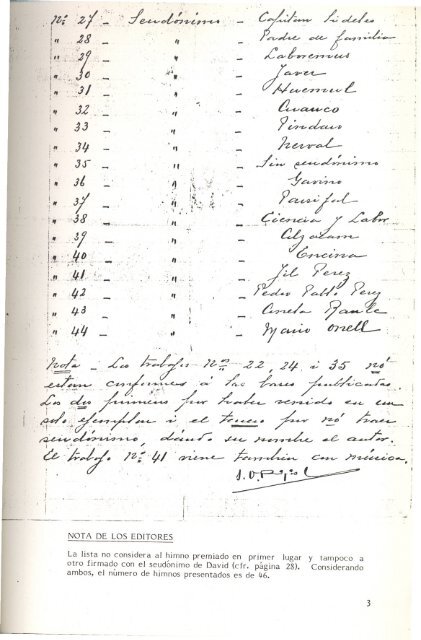 Nº 27 - Seudónimo - Capitan Fideles
" 28 - " - Padre de familia
" 29 - " - Laboremus
" 30 - " - Javer
" 31 - " - Huemul
" 32 - " - Guanco
" 33 - " - Píndaro
" 34 - " - Nerval
" 35 - " - Sin seudónimo
" 36 - " - Gavino
" 37 - "
" 38 - " - Ciencia y Labor
" 39 - "
" 40 - " - Encina
" 41 - " - Jil Perez
" 42 - " - Pedro Pablo Perez
" 43 - "
" 44 - " - Mario Onell
Nota - Los trabajos Nos 22, 24 i 35 nó
estan conformes á las bases publicadas.
Los dos primeros por haber venido en un
solo ejemplar i el tercero por nó traer
seudónimo, dando su nombre el autor.
El trabajo Nº 41 viene tambien con música.
NOTA DE LOS EDITORES
La lista no considera al himno premiado en primer lugar y tampoco a
otro firmado con el seudónimo de David (cfr. página 28). Considerando
ambos, el número de himnos presentados es de 46.
3